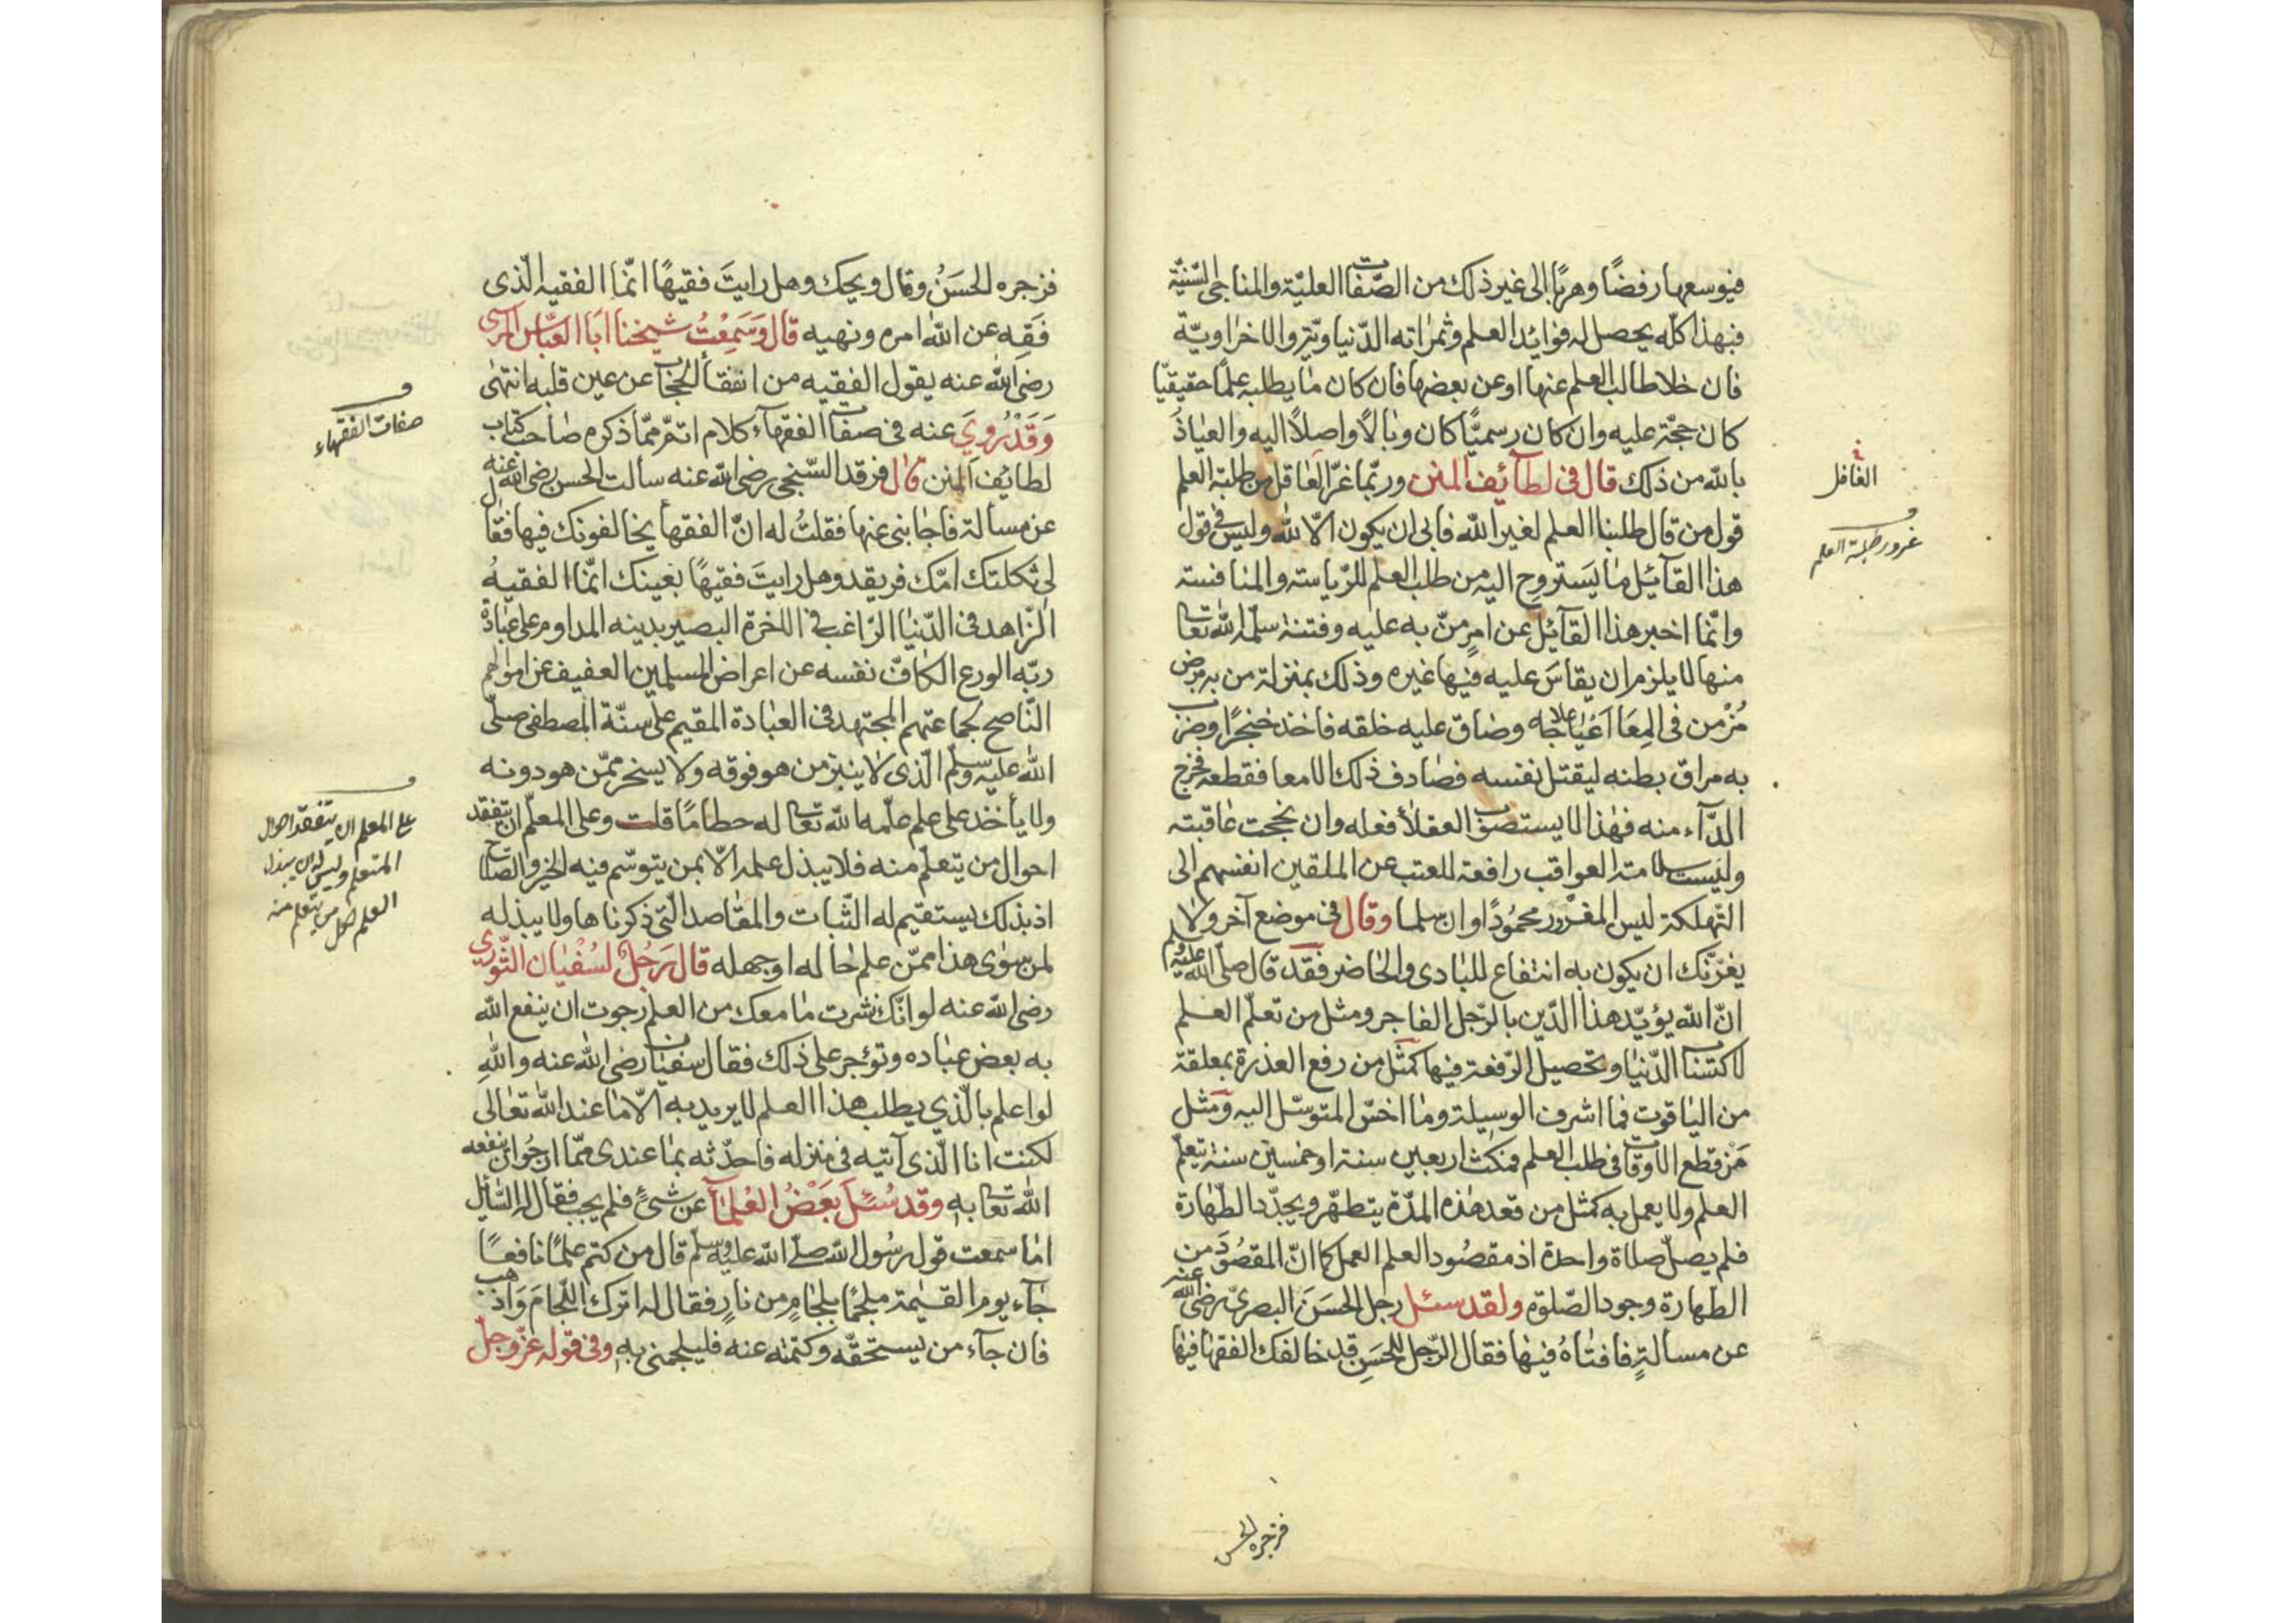 فيوسعها رفضًا وهربًا الى غير ذلك من الصّفات العليّة والمناحى السّنيّة
فبهذا كلّه يحصل له فوائد العلم وثمراته الدّنياويّة والاخراويّة
فان خلا طالب العلم عنها او عن بعضها فان كان ما يطلبه علمًا حقيقيّا
كان حجّة عليه وان كان رسميًّا كان وبالًا واصلًا اليه والعياذُ
بالله من ذلك قال فى لطآئف المنن وربّما غرّ الغافل من طلبة العلم
قول من قال طلبنا العلم لغير الله فابى ان يكون الّا لله وليس فى قول
هذا القآئل ما يَستروح اليه من طلب العلم للرّياسته والمنافسته
وانّما اخبر هذا القآئل عن امرٍ منّ به عليه وفتنة سلّمه الله تعالى
منها لا يلزم ان يقاسَ عليه فيها غيره وذلك بمنزلة من به مرض
مُزْمن فى المِعَا اَعْيَا علاجه وضاق عليه خلقه فاخذ خنجرًا وضرب
به مراق بطنه ليقتل نفسه فصادف ذلك الامعا فقطعه فخرج
الدّآء منه فهذا لا يستصوب العقلأ فعله وان نجحت عاقبته
وليست سلامته العواقب رافعة للعتب عن الملقين انفسهم الى
التّهلكة ليس المغرور محمُودًا وان سلما وقال فى موضع آخر ولا
يغرّنّك ان يكون به انتفاع للبادى والحاضر فقد قال صلّى الله عليه وسلم
انّ الله يؤيّد هذا الدّين بالرّجل الفاجر ومثل من تعلّم العلم
لاكتساب الدّنيا وتحصيل الرّفعة فيها كمثل من رفع العذرة بمعلقة
من الياقوت فما اشرف الوسيلة وما اخسّ المتوسّل اليه ومثل
مَنْ قطع الاوقات فى طلب العلم فمكث اربعين سنة او خمسين سنة يتعلّم
العلم ولا يعمل به كمثل من قعد هذه المدّة يتطهّر ويجدّد الطّهارة
فلم يصلّ صلاة واحدة اذ مقصُود العلم العمل كما انّ المقصُودَ من
الطهارة وجود الصّلوة ولقد سئل رجل الحسَنَ البصرىّ رضى الله عنه
عن مسالةٍ فافتاهُ فيها فقال الرّجل للحسَنِ قد خالفك الفقها فيها
الغافل
غرور طلبة العلم
فزجره الحسن
فزجره الحسَنُ وقال ويحك وهل رايتَ فقيهًا انّما الفقيه الّذى
فَقِه عن الله امره ونهيه قال وَسَمِعْتُ شيخنا ابَا العبّاس المرسى
رضى الله عنه يقول الفقيه من انفقأ الحجاب عن عين قلبه انتهى
وَقَدْ رُوِيَ عنه فى صفات الفقهآء كلام اتمّ ممّا ذكره صاحب كتاب
لطائف المنن قال فرقد السّنجى رضى الله عنه سألت الحسن رضى الله عنه
عن مسألة فاجابنى عنها فقلتُ له انّ الفقهأ يخالفونك فيها فقال
لى ثكلتك امّك فريقد وهل رايتَ فقيهًا بعينك انّما الفقيهُ
الزّاهد فى الدّنيا الرّاغب فى الاخرة البصير بدينه المداوم على عبادة
ربّه الورع الكافّ نفسه عن اعراض المسلمين العفيف عن اموالهم
النّاصح لجماعتهم المجتهد فى العبادة المقيم على سنّة المصطفى صلّى
الله عليه وسلّم الّذى لا ينبز من هو فوقه ولا يسخر ممّن هو دونه
ولا يأخذ على علم علّمه الله تعالى له حطامًا قلت وعلى المعلّم ان يتفقد
احوال من يتعلّم منه فلا يبذل علمه الّا بمن يتوسّم فيه الخير والصلاح
اذ بذلك يستقيم له الثّبات والمقاصد الّتى ذكرناها ولا يبذله
لمن سوى هذا ممّن علم حاله او جهله قال رَجُلٌ لسُفْيان الثّورىّ
رضى الله عنه لو انّك نشرت ما معك من العلم رجوت ان ينفع الله
به بعض عباده وتؤجر على ذلك فقال سفيان رضى الله عنه واللهِ
لو اعلم بالّذي يطلب هذا العلم لا يريد به الّا ما عند الله تعالى
لكنت انا الّذى آتيه فى منزله فاحدّثه بما عندى ممّا ارجُو ان ينفعه
الله تعالى به وقد سُئلَ بَعْضُ العُلمآء عن شىءٍ فلم يجب فقال له السّآئل
اما سمعت قول رسُول الله صلّى الله عليه وسلّم قال من كتم علمًا نافعًا
جآء يوم القيمة ملجمًا بلجامٍ من نارٍ فقال له اترك اللّجامَ وَاذهب
فان جآء من يستحقّه وكتمته عنه فليلجمنى به وفى قوله عزّ وجلّ
صفات الفقهاء
على المعلم ان يتفقد احوال
المتعلم وليس له ان يبذل
العلم لكل من يتعلم منه